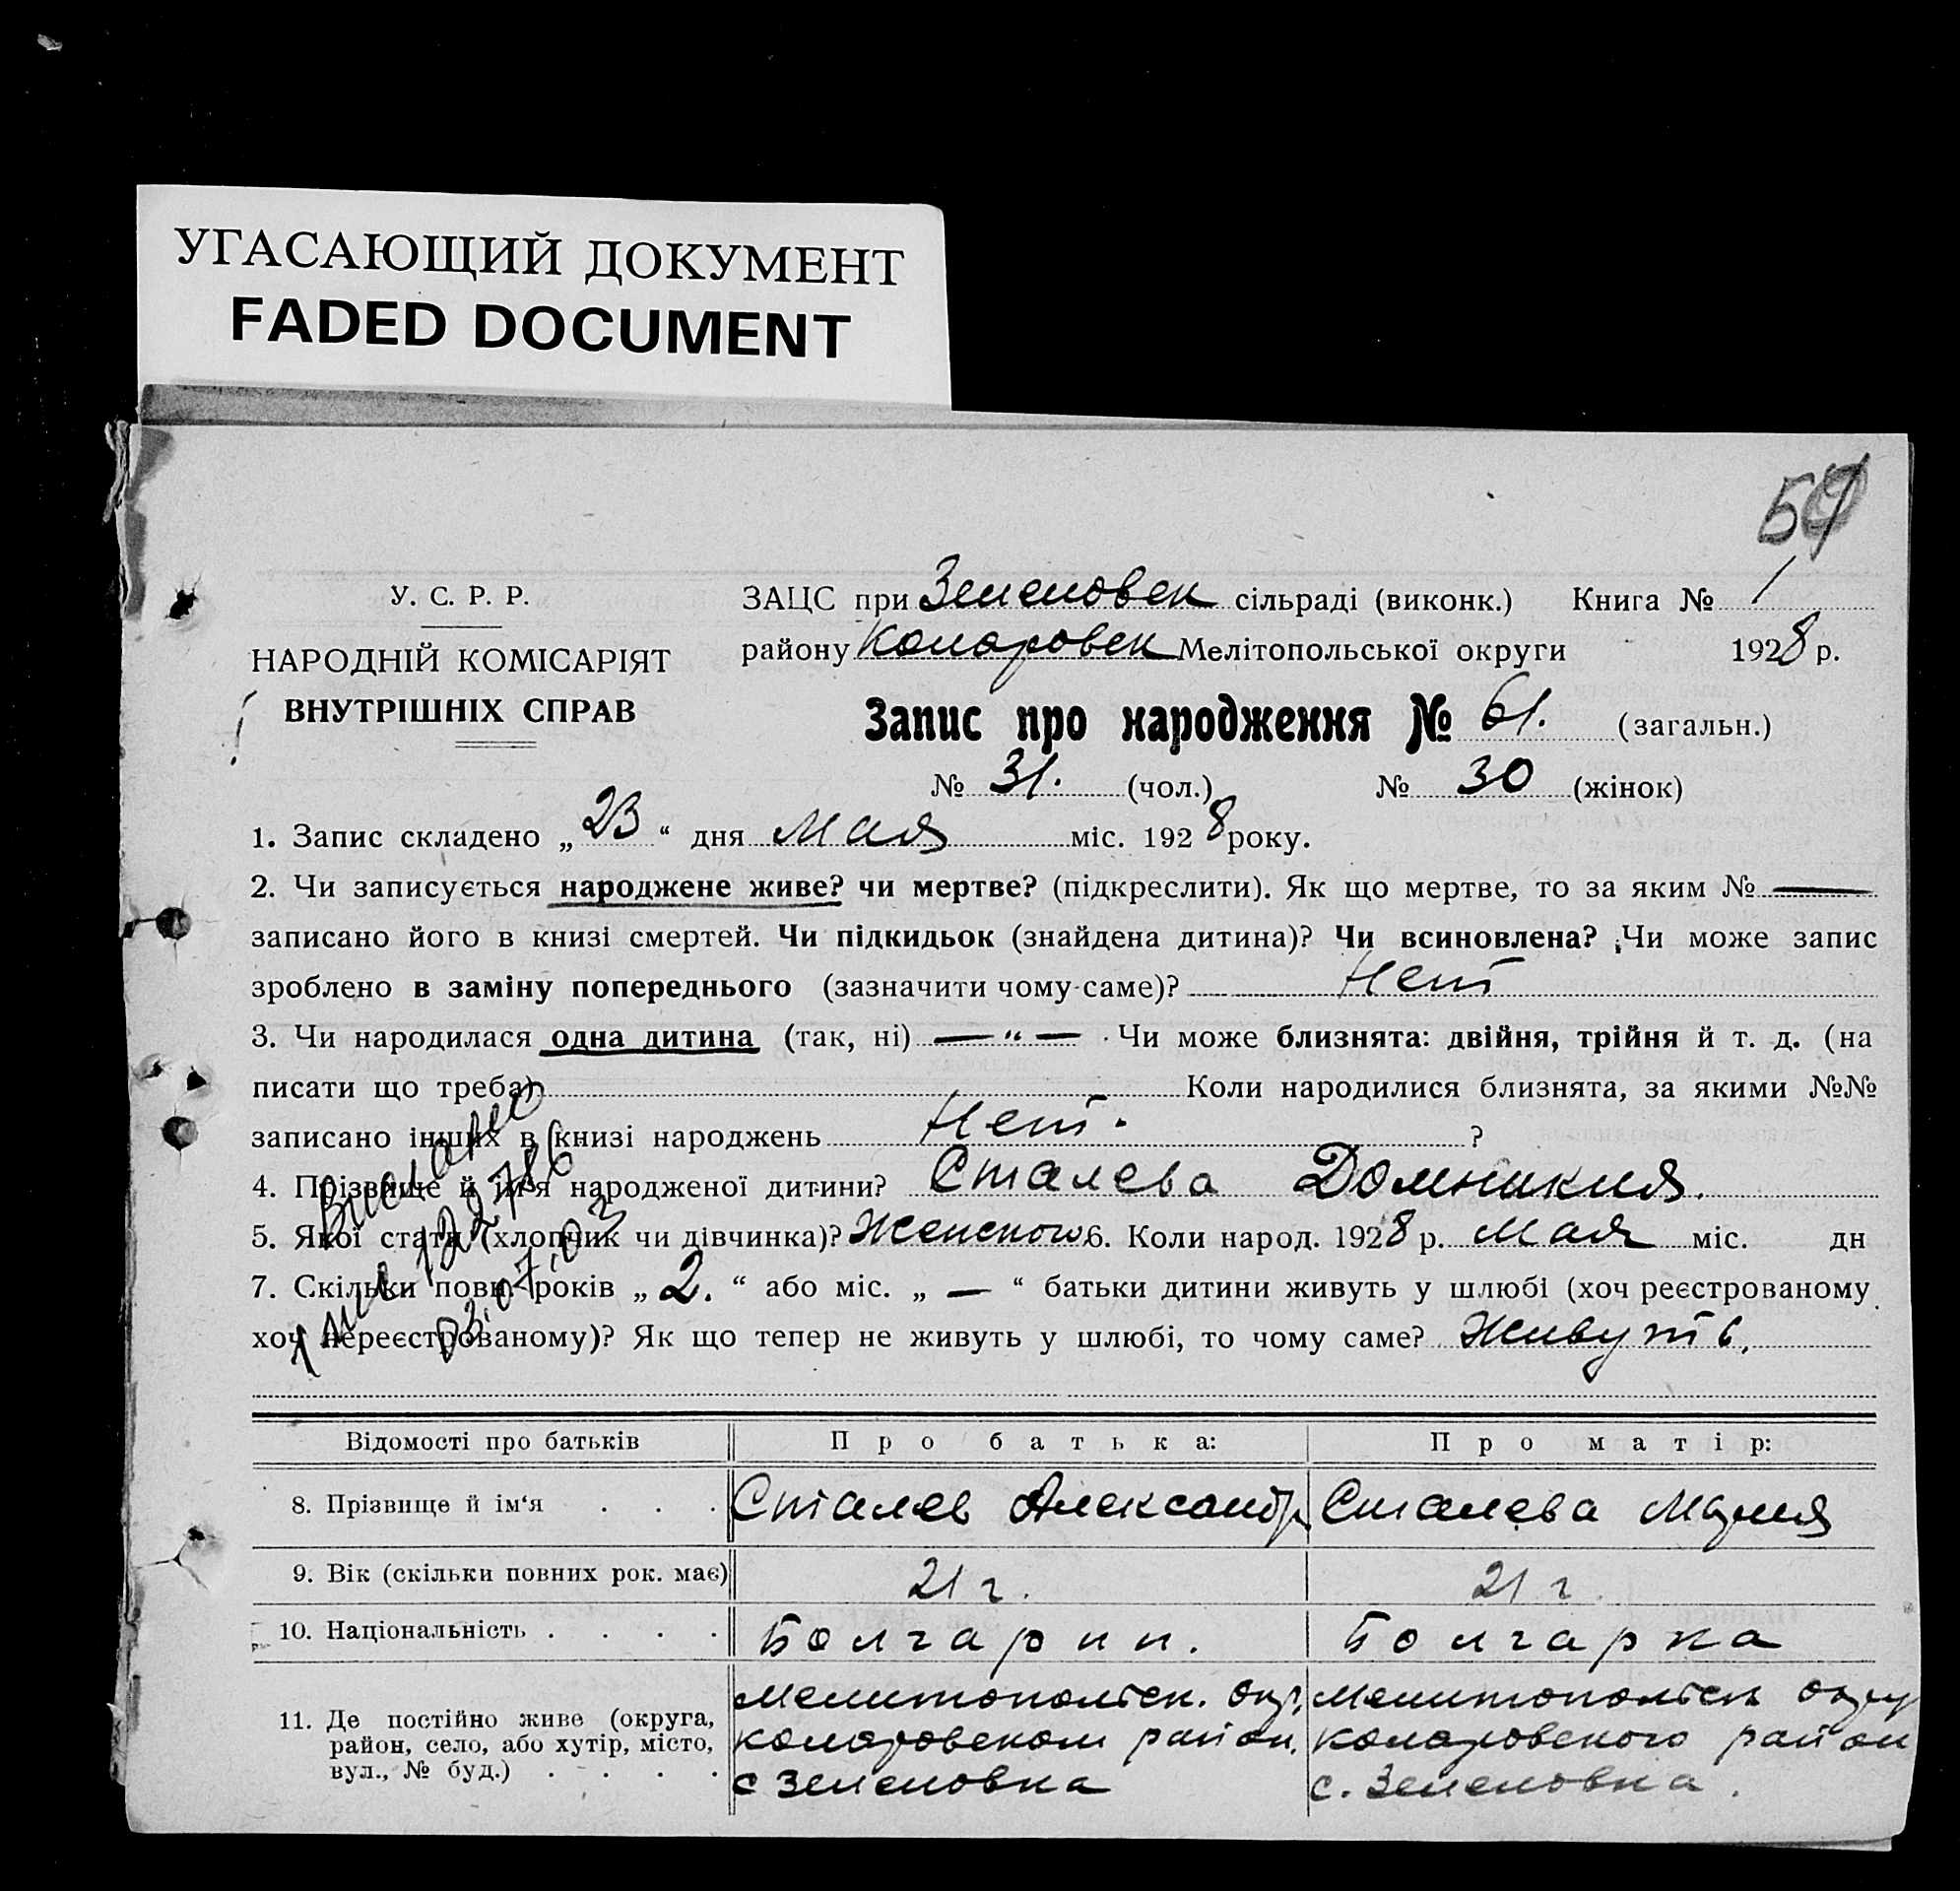 УГАСАЮЩИЙ ДОКУМЕНТ
FADED DOCUMENT
У. С. Р. Р.
НАРОДНІЙ КОМІСАРІЯТ
ВНУТРІШНІХ СПРАВ
ЗАЦС при Зеленовск сільраді (виконк.) Книга № 1
району Коларовск Мелітопольської округи 1928 р.
Запис про народження № 61. (загальн.)
№ 31. (чол.) № 30 (жінок)
1. Запис складено „ 23 “ дня Мая міс. 1928 року.
2. Чи записується народжене живе? чи мертве? (підкреслити). Як що мертве, то за яким № —
записано його в книзі смертей. Чи підкидьок (знайдена дитина)? Чи всиновлена? Чи може запис
зроблено в заміну попереднього (зазначити чому-саме)? Нет
3. Чи народилася одна дитина (так, ні) — “ — Чи може близнята: двійня, трійня й т. д. (на
писати що треба) Коли народилися близнята, за якими №№
записано інших в книзі народжень Нет. ?
4. Прізвище й ім'я народженої дитини? Сталева Домникия.
5. Якої стати (хлопчик чи дівчинка)? Женского 6. Коли народ. 1928 р. Мая міс. дн
7. Скільки повн. років „ 2. “ або міс. „ — “ батьки дитини живуть у шлюбі (хоч реєстрованому
хоч нереєстрованому)? Як що тепер не живуть у шлюбі, то чому саме? Живуть.
03.07.03
Відомості про батьків Про батька: Про матір:
8. Прізвище й ім‘я . . . Сталев Александр Сталева Мария
9. Вік (скільки повних рок. має) 21 г. 21 г.
10. Національність . . . . Болгарин. Болгарка
11. Де постійно живе (округа,
район, село, або хутір, місто,
вул., № буд.) . . . .
Мелитопольск. окр,
коларовском район.
с Зеленовка
Мелитопольск окру
коларовского район
с. Зеленовка.